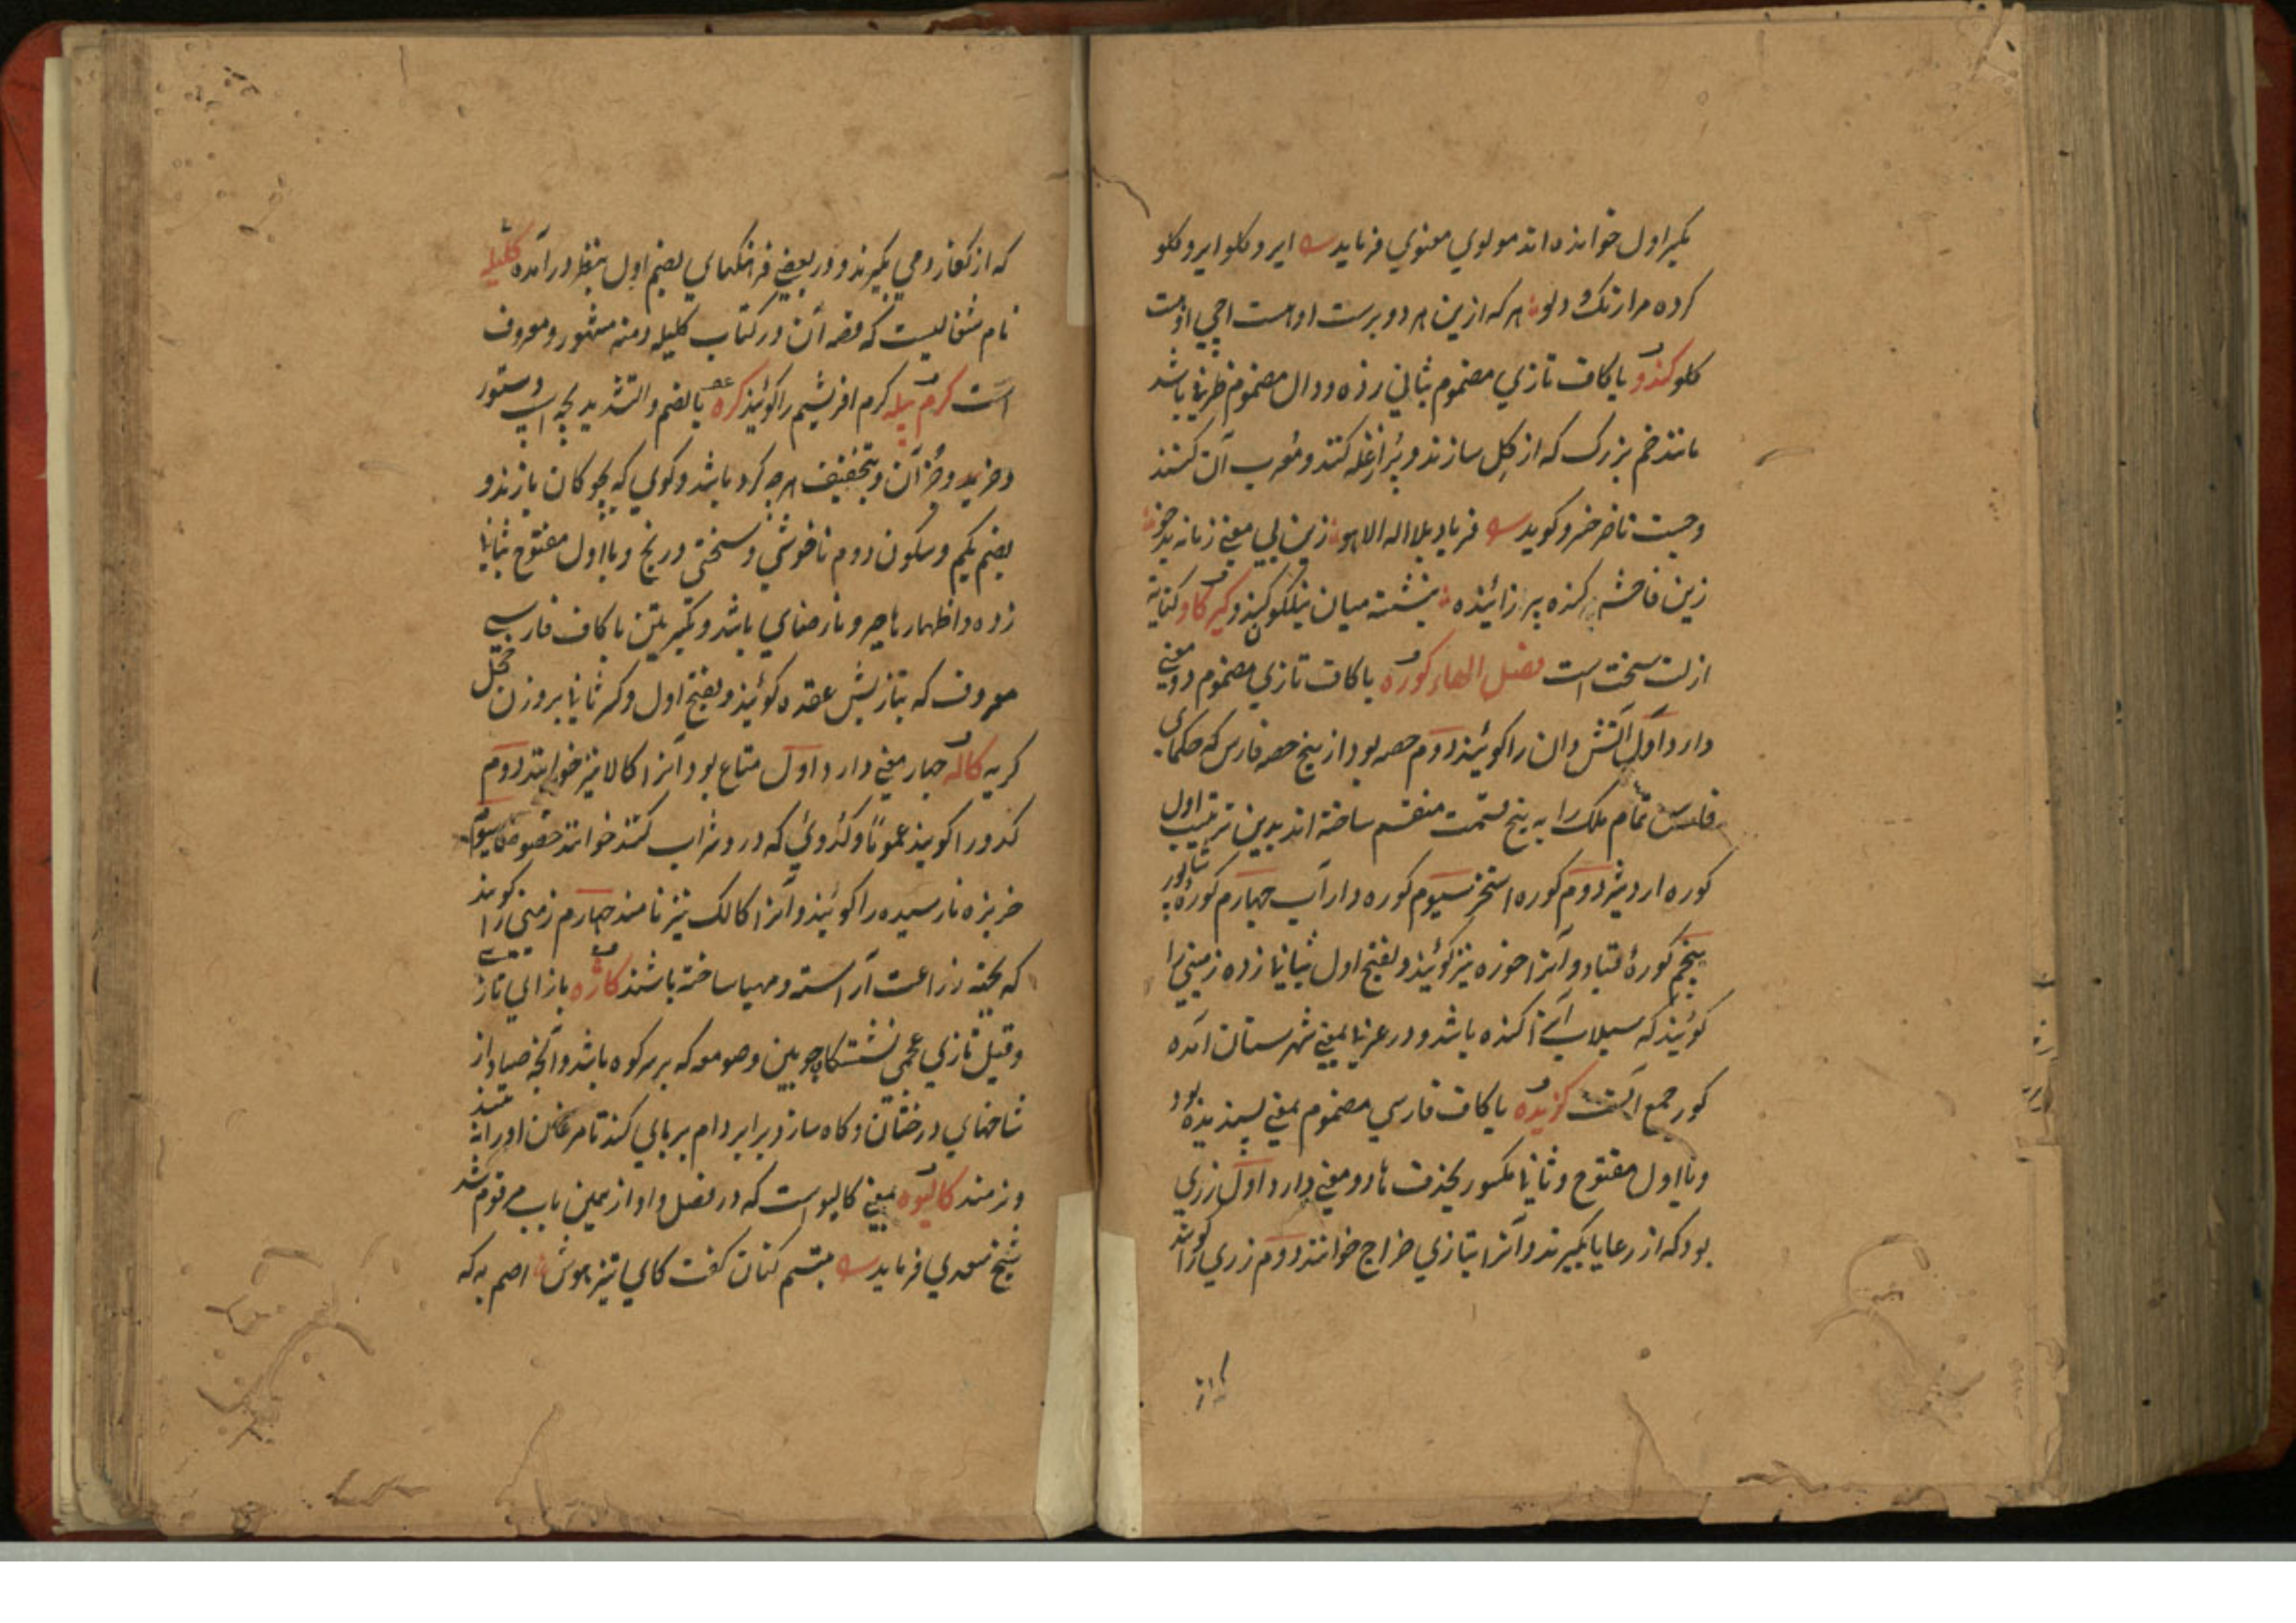 بکسر اول خوانده اند مولوی معنوی فرماید ایر و کلو ایر و کلو
کرده مرا زنک و دلو هر که ازین هر دو برست اوست اچی اوست
کلو کندو با کاف تازی مضموم بثانی زده و دال مضموم ظرفی باشد
مانند خم بزرک که از کل سازند و پر از غله کنند و معرب آن کنند
و جیست ناصر خسرو کوید فریاد بلا اله الا هو زین بی معنی زمانه بدخو
زین فاحشه کنده پیر زاینده بنشسته میان نیلکو کندو کیر کاو کنایه
از لت سخت است فصل الهاء کوره با کاف تازی مضموم دو معنی
دارد اول آتش دان را کویند دوم حصه بود از پنج حصه فارس که حکمای
فارس تمام ملک را به پنج قسمت منقسم ساخته اند بدین ترتیب اول
کوره اردشیر دوم کوره استخر سیوم کوره داراب چهارم کوره شاپور
پنجم کورهٔ قباد و آنرا خوره نیز کویند و بفتح اول بثانی زده زمینی را
کویند که سیلاب آنرا کنده باشد و در عربی بمعنی شهرستان آمده
کور جمع آنست کزیده با کاف فارسی مضموم بمعنی پسندیده بود
و با اول مفتوح و ثانی مکسور بحذف ها دو معنی دارد اول زری
بود که از رعایا بکیرند و آنرا بتازی خراج خوانند دوم زری را کویند
که از
که از کفار زومی بکیرند و در بعضی فرهنکهای بضم اول بنظر در آمده کلیله
نام شغالیست که قصه آن در کتاب کلیله و دمنه مشهور و معروف
است کرم پیله کرم افریشم را کویند کره با بضم و التشدید بچه اسپ و ستور
و خر و جز آن و بتخفیف هر چه کرد باشد و کوی که بچوکان بازند و
بضم یکم و سکون دوم ناخوشی و سختی و رنج و با اول مفتوح بثانی
زده و اظهار ها جبر و نارضای باشد و بکسرتین با کاف فارسی
معروف که بتازیش عقده کویند و بفتح اول و کسر ثانی بر وزن خجل
کریه کاله چهار معنی دارد اول متاع بود آنرا کالا نیز خوانند دوم
کدو را کویند عموماً و کدوئی که در و شراب کنند خوانند خصوصا سیوم
خربزه نارسیده را کویند و آنرا کالک نیز نامند چهارم زمینی را کویند
که بجهته زراعت آراسته و مهیا ساخته باشند کازه با زای تازی
و قیل تازی عجمی نشستکاه چوبین و صومعه که بر سر کوه باشد و آنچه صیاد از
شاخهای درختان و کاه سازد برابر دام بر پای کند تا مرغان او را نه بینند
و نرمند کالیوه بمعنی کالیو است که در فصل واو از همین باب مرقوم شد
شیخ سعدی فرماید تبسم کنان کفت کای تیز هوش اصم به که